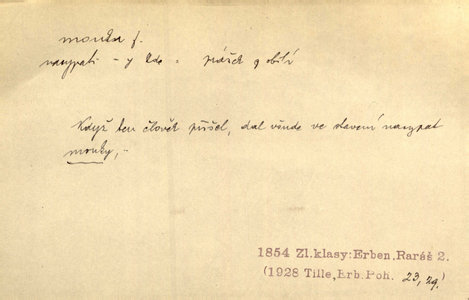 mouka f.
nasypati – y kde = prášek z obilí
Když ten člověk přišel, dal všude ve stavení nasypat
mouky, –
1854 Zl.klasy:Erben,Raráš 2.
(1928 Tille,Erb.Poh. 23,29)